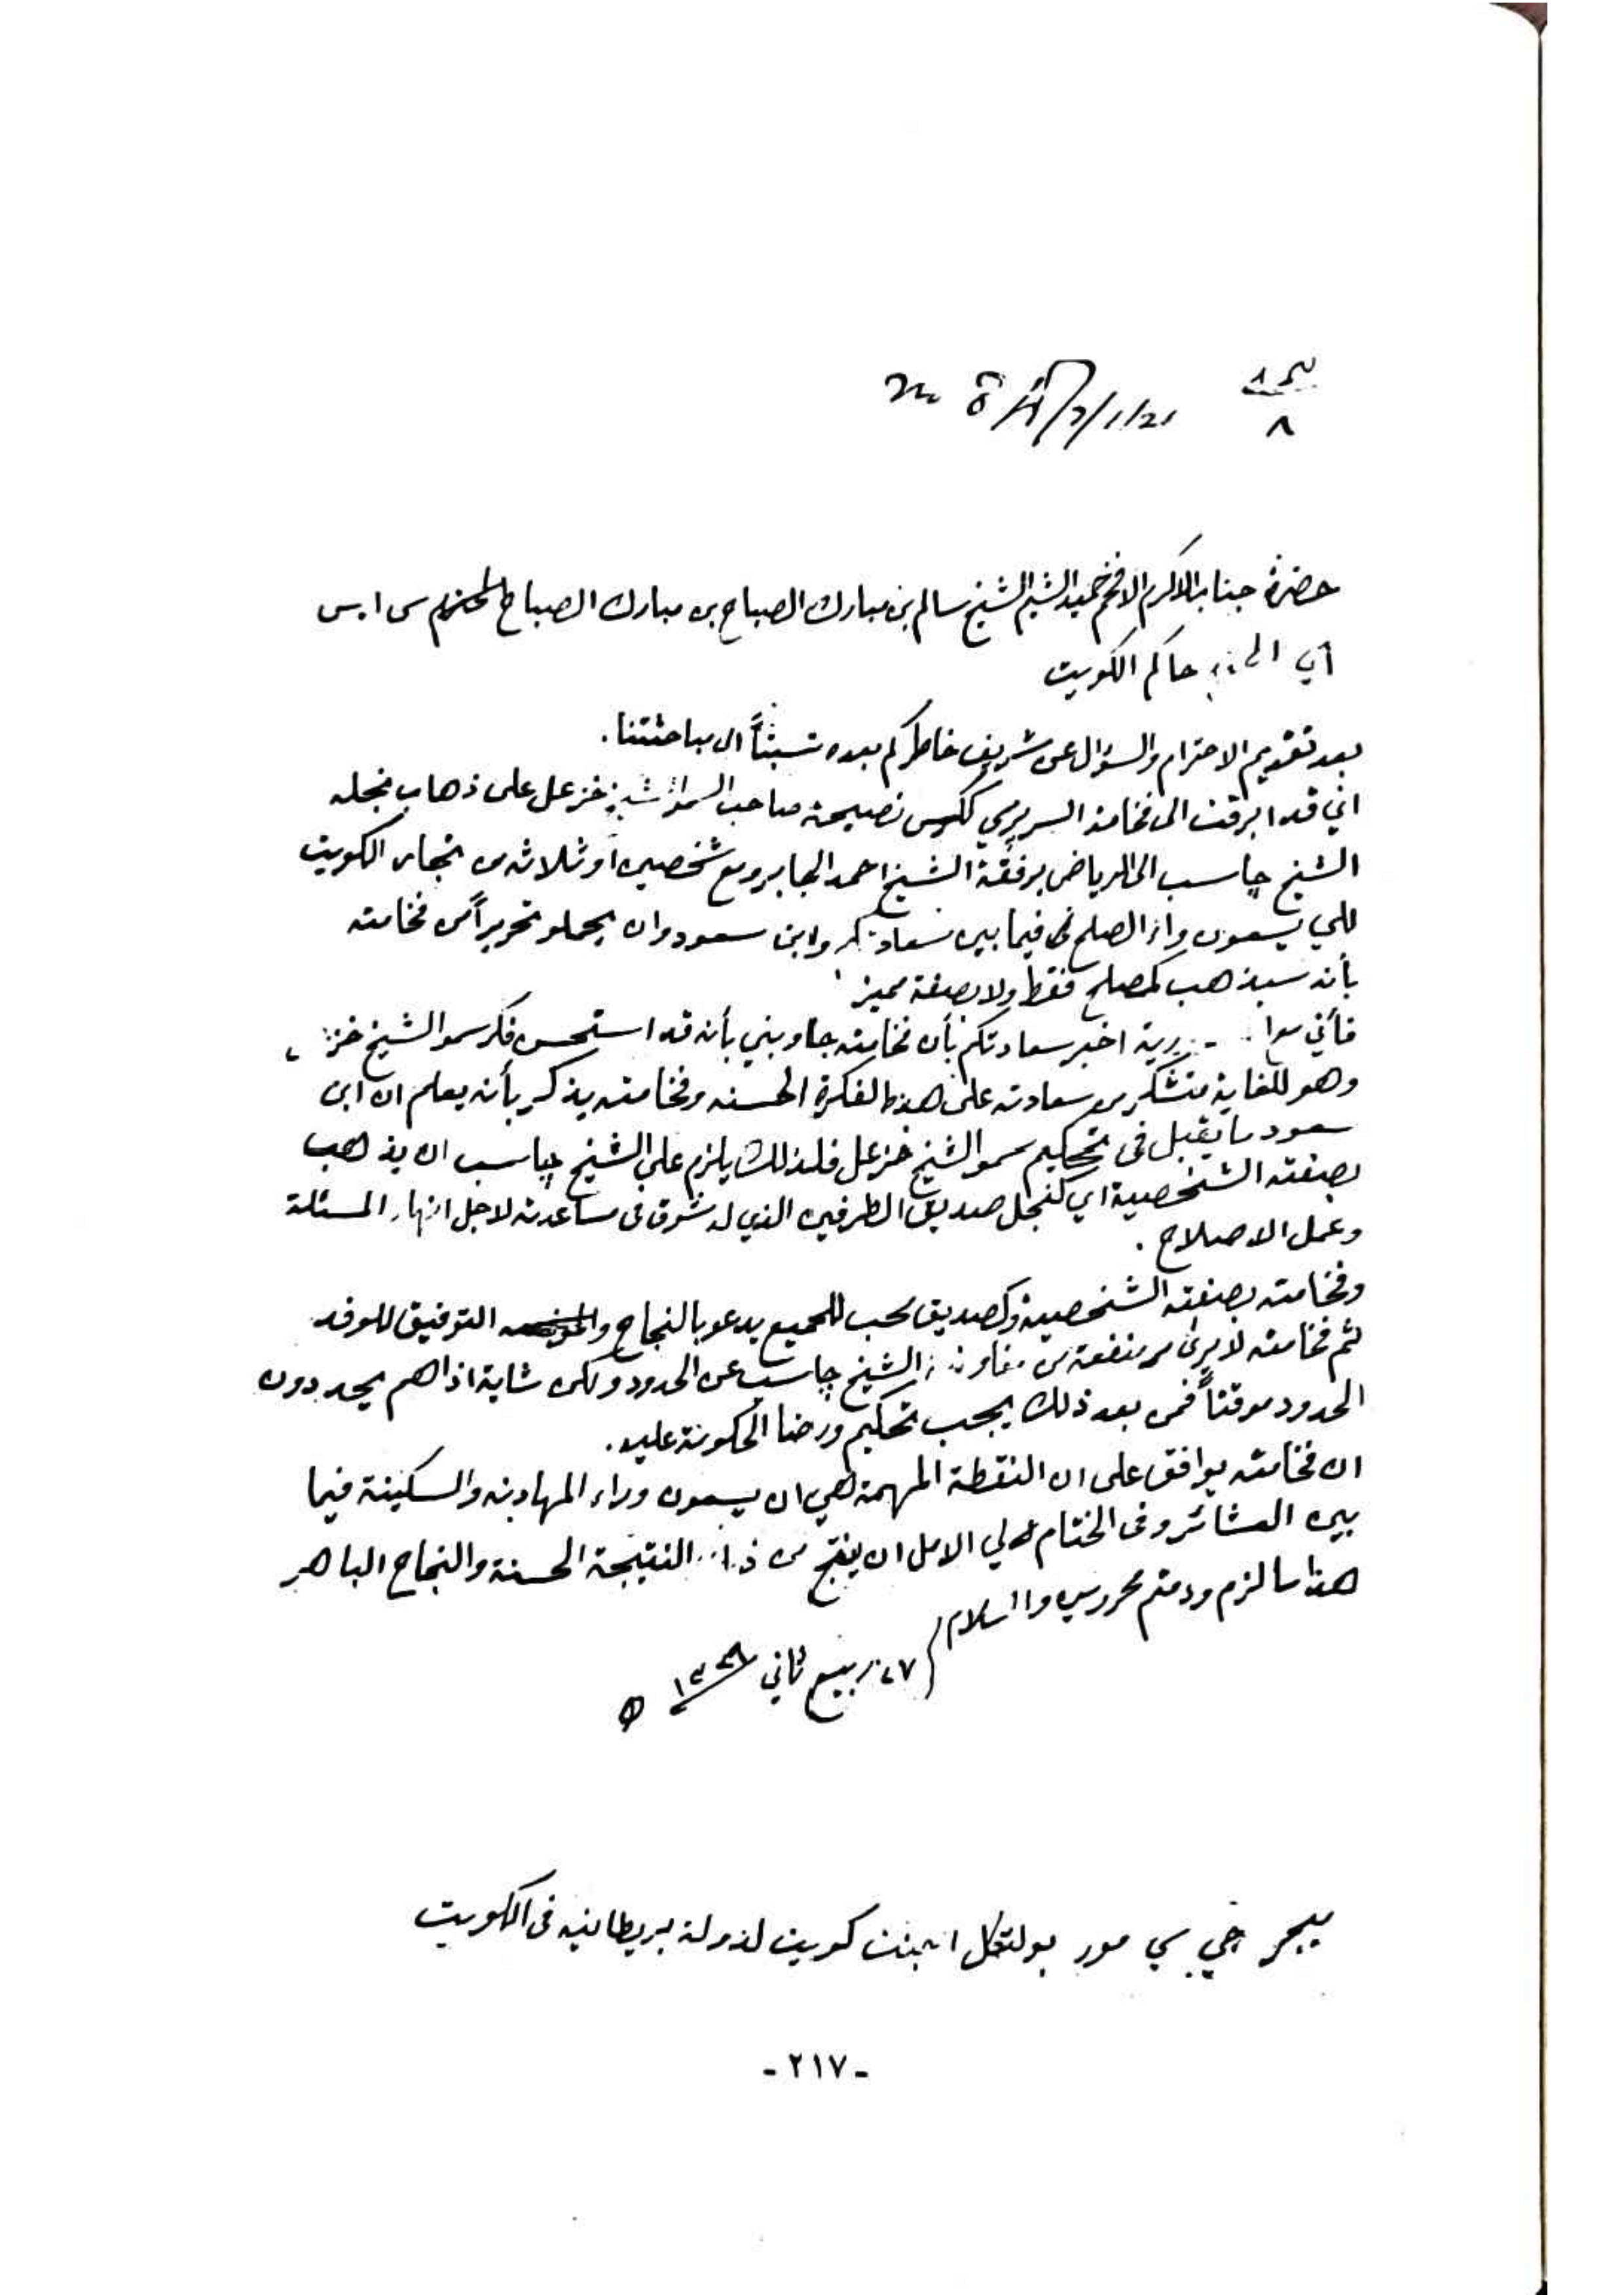 ٨
7/1/21
حضرة جناب الاكرم الافخم حميد الشيم الشيخ سالم بن مبارك الصباح بن مبارك الصباح المحترم سي ايس
آي حاكم الكويت
بعد تقديم الاحترام والسؤال عن شريف خاطركم بعده نسبتاً الى مباحثتنا.
اني قد ابرقت الى فخامة السر برسي ككس نصيحة صاحب السمو شيخ خزعل على ذهاب نجله
الشيخ چاسب الى الرياض برفقة الشيخ احمد الجابر ومع شخصين او ثلاثة من تجار الكويت
للي يسعون وراء الصلح في فيما بين سعادتكم وابن سعود وان يحملو تحريراً من فخامته
بأنه سيذهب كمصلح فقط ولا بصفة مميز
فأني اخبر سعادتكم بأن فخامته جاوبني بأنه قد استحسن فكر سمو الشيخ
وهو للغاية متشكر من سعادته على هذه الفكرة الحسنه وفخامته يذكر بأنه يعلم ان ابن
سعود ما يقبل في تحكيم سمو الشيخ خزعل فلذلك يلزم على الشيخ چاسب ان يذهب
بصفته الشخصية اي كنجل صديق الطرفين الذي له شوق في مساعدته لاجل انهاء المسئلة
وعمل الاصلاح.
وفخامته بصفته الشخصية وكصديق محب للجميع يدعو بالنجاح و التوفيق للوفد
ثم فخامته لا يرى من منفعة من الشيخ چاسب عن الحدود ولكن شاية اذا هم يحددون
الحدود موقتاً فمن بعد ذلك يجب تحكيم ورضا الحكومة عليه.
ان فخامته يوافق على ان النقطة المهمة هي ان يسعون وراء المهادنه والسكينة فيما
بين العشائر وفي الختام لي الامل ان ينتج من النتيجة الحسنة والنجاح الباهر
هذا ما لزم ودمتم محروسين والسلام
٢٧ ربيع ثاني ١٣٣٩
ميجر جي سي مور بولتكل اجنت كويت لدولة بريطانيه في الكويت
- ٢١٧ -